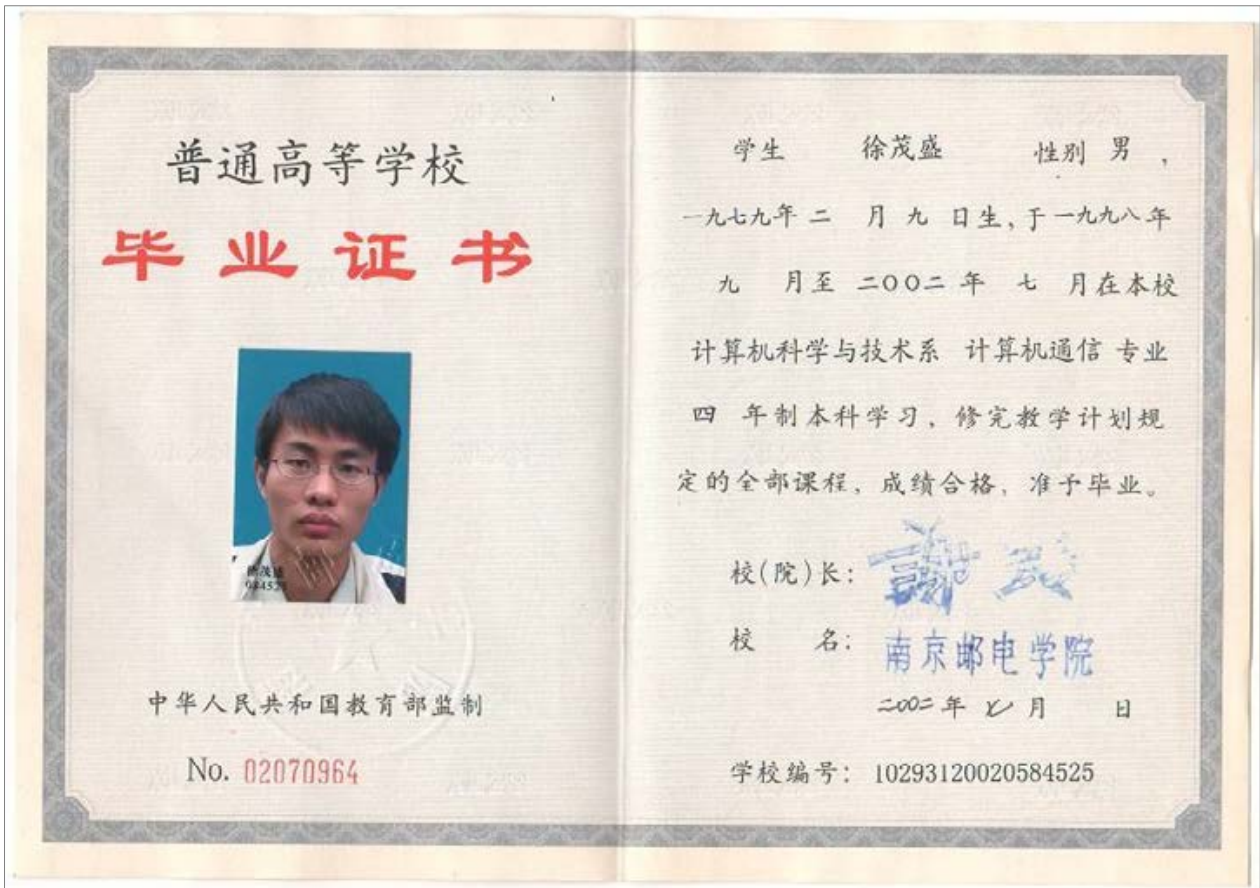 普通高等学校
毕业证书
中华人民共和国教育部监制
No. 02070964
学生 徐茂盛 性别 男 ，
一九七九年 二 月 九 日生，于一九九八年
九 月至 二〇〇二 年 七 月在本校
计算机科学与技术系 计算机通信 专业
四 年制本科学习，修完教学计划规
定的全部课程，成绩合格，准予毕业。
校(院)长：
校 名： 南京邮电学院
二〇〇二年 七 月 日
学校编号： 102931200205​84525